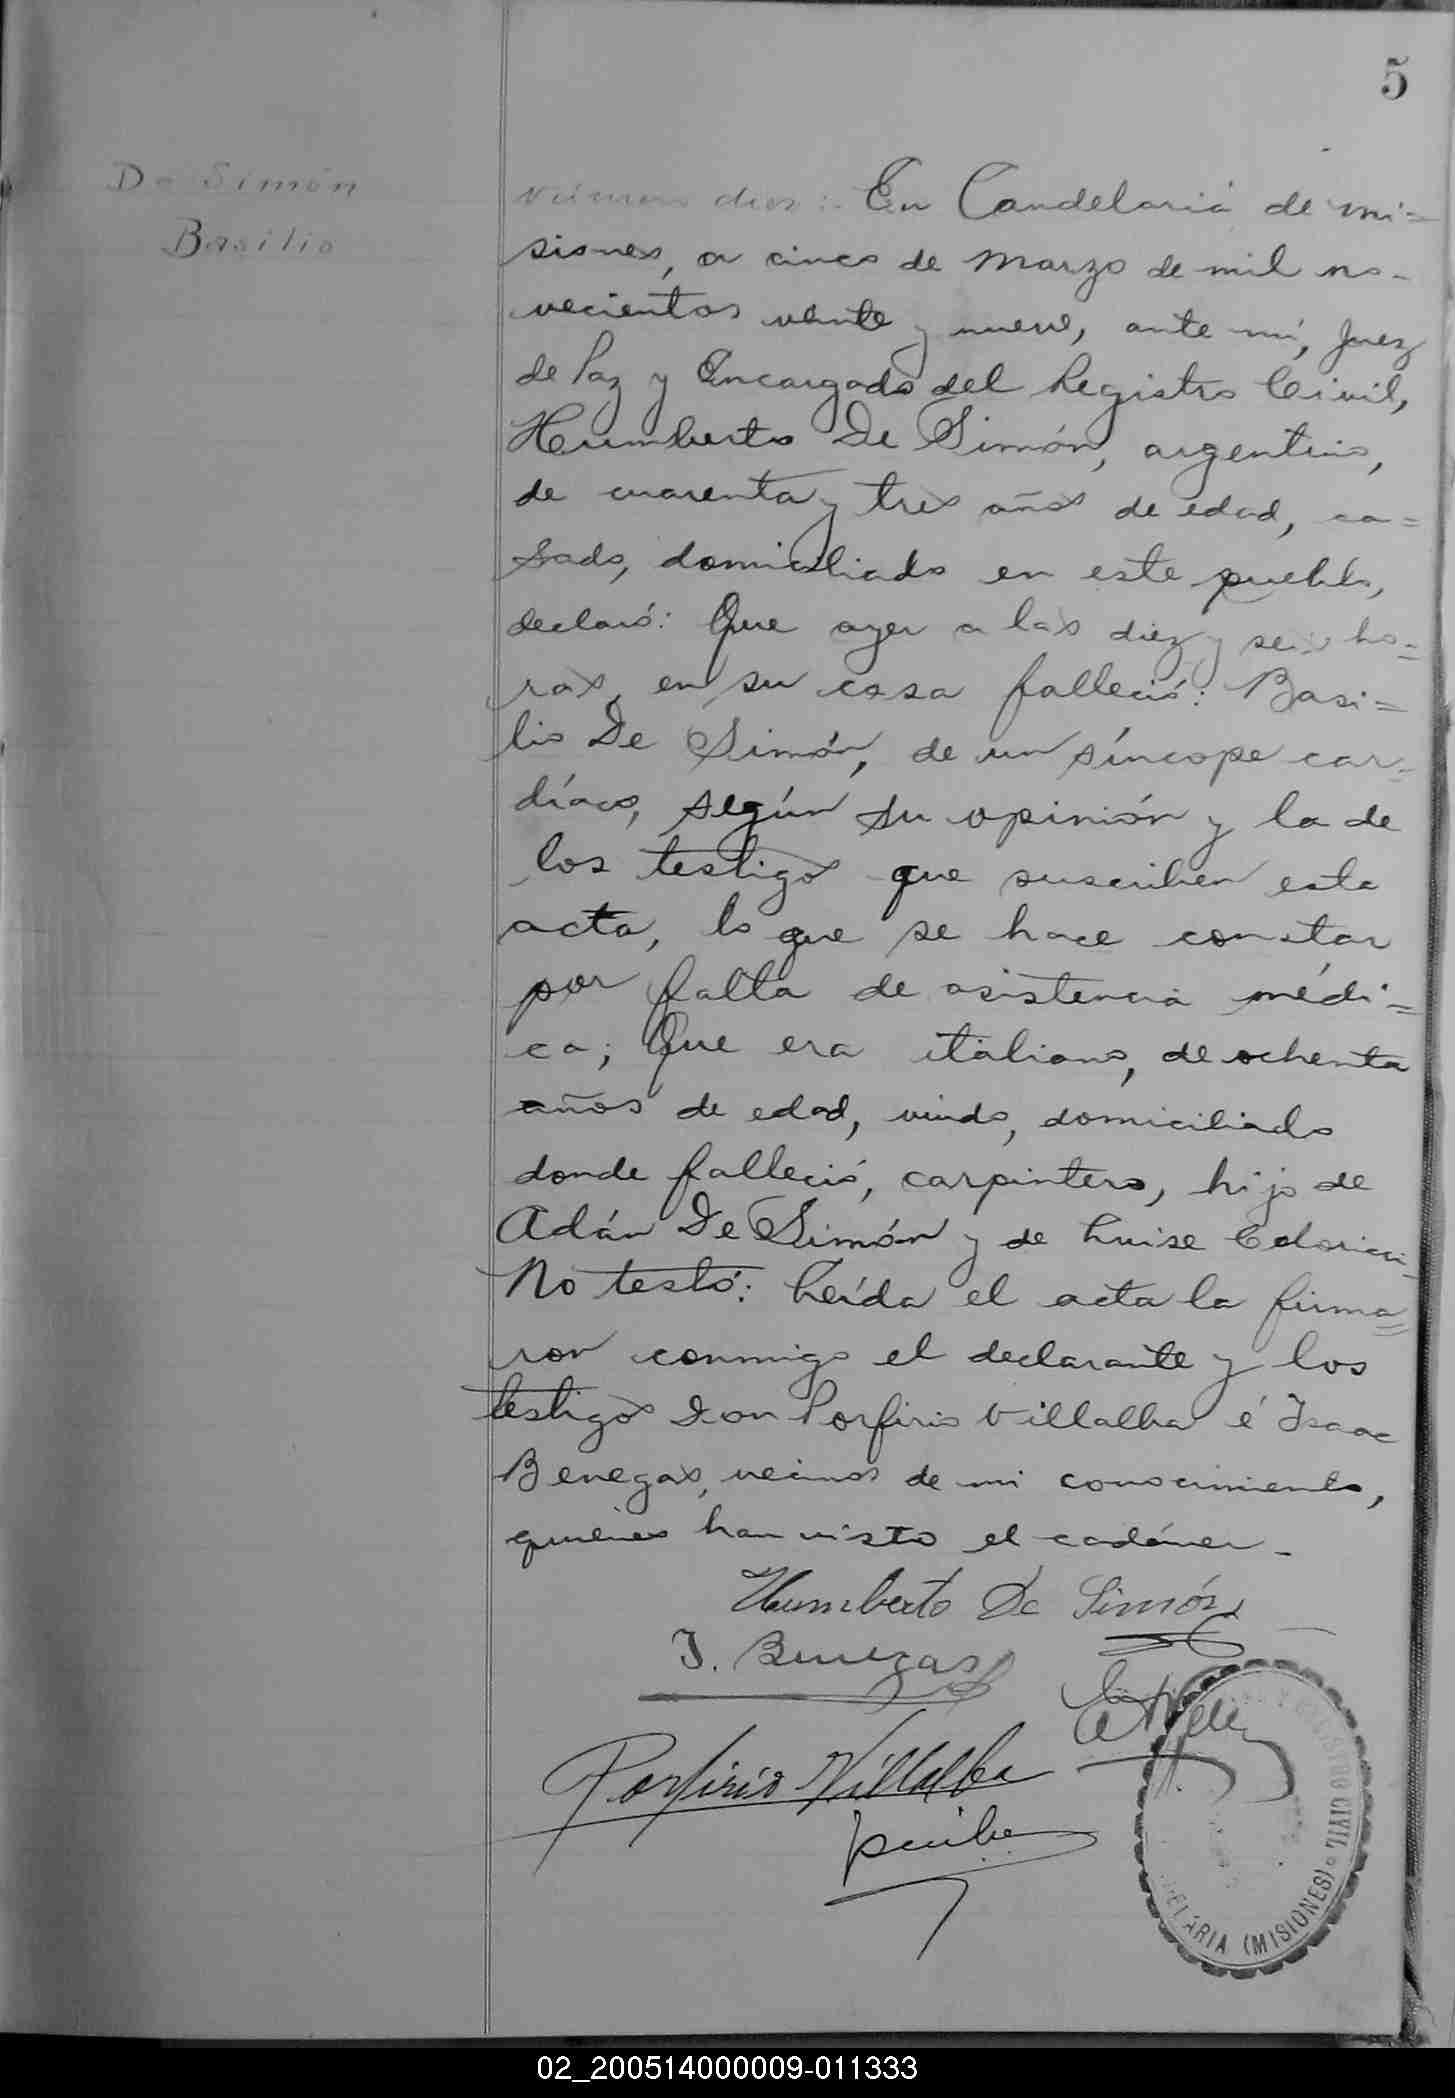 5
De Simón
Basilio
Número diez: En Candelaria de mi=
siones, a cinco de Marzo de mil no-
vecientos veinte y nueve, ante mí, Juez
de Paz y Encargado del Registro Civil,
Humberto De Simón, argentino,
de cuarenta y tres años de edad, ca=
sado, domiciliado en este pueblo,
declaró: Que ayer a las diez y seis ho=
ras, en su casa falleció: Basi=
lio De Simón, de un síncope car-
díaco, según su opinión y la de
los testigos que suscriben esta
acta, lo que se hace constar
por falta de asistencia médi=
ca; Que era italiano, de ochenta
años de edad, viudo, domiciliado
donde falleció, carpintero, hijo de
Adán De Simón y de Luise
No testó: Leída el acta la firma=
ron conmigo el declarante y los
testigos Don Porfirio Villalba é Isaac
Benegas, vecinos de mi conocimiento,
quienes han visto el cadáver-
Humberto De Simón
I. Benegas
Porfirio Villalba
REGISTRO CIVIL
DELARIA (MISIONES)
02_200514000009-011333